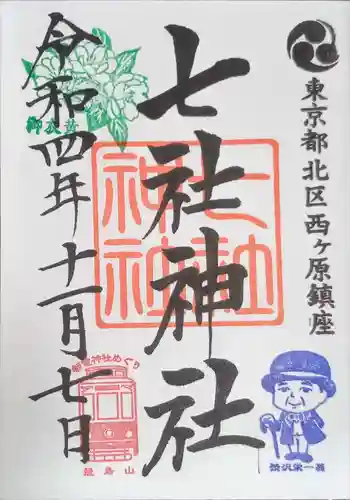 東京都北区西ヶ原鎮座
七社神社
七社
神社
令和四年十一月七日
御衣黄
御電神社めぐり
飛鳥山
渋沢栄一翁